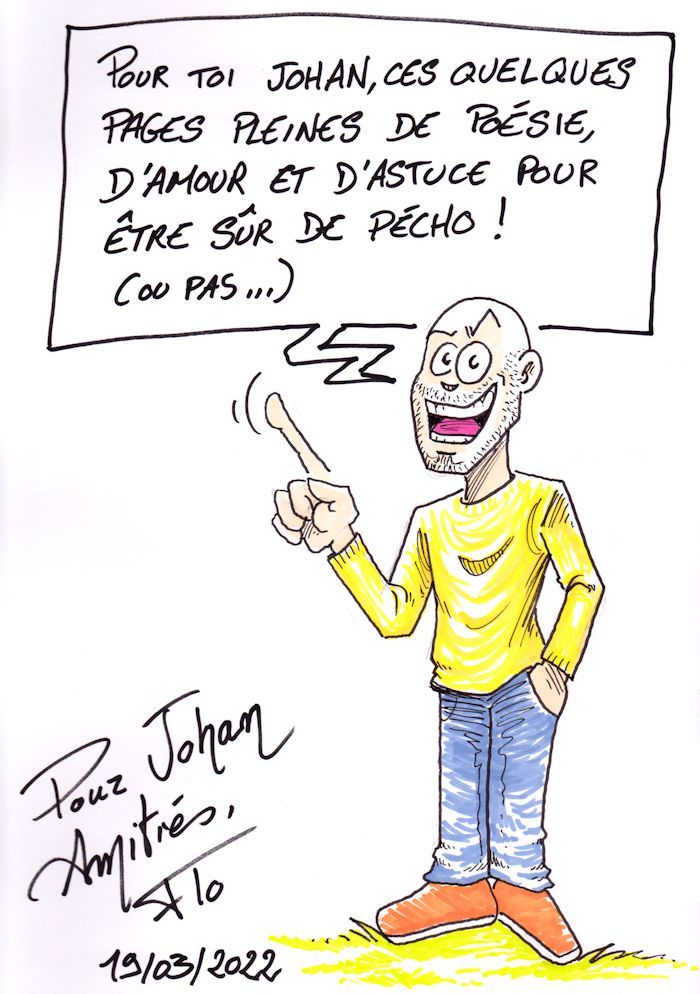 POUR TOI JOHAN, CES QUELQUES
PAGES PLEINES DE POÉSIE,
D'AMOUR ET D'ASTUCE POUR
ÊTRE SÛR DE PÉCHO !
(OU PAS...)
Pour Johan
Amitiés,
Flo
19/03/2022